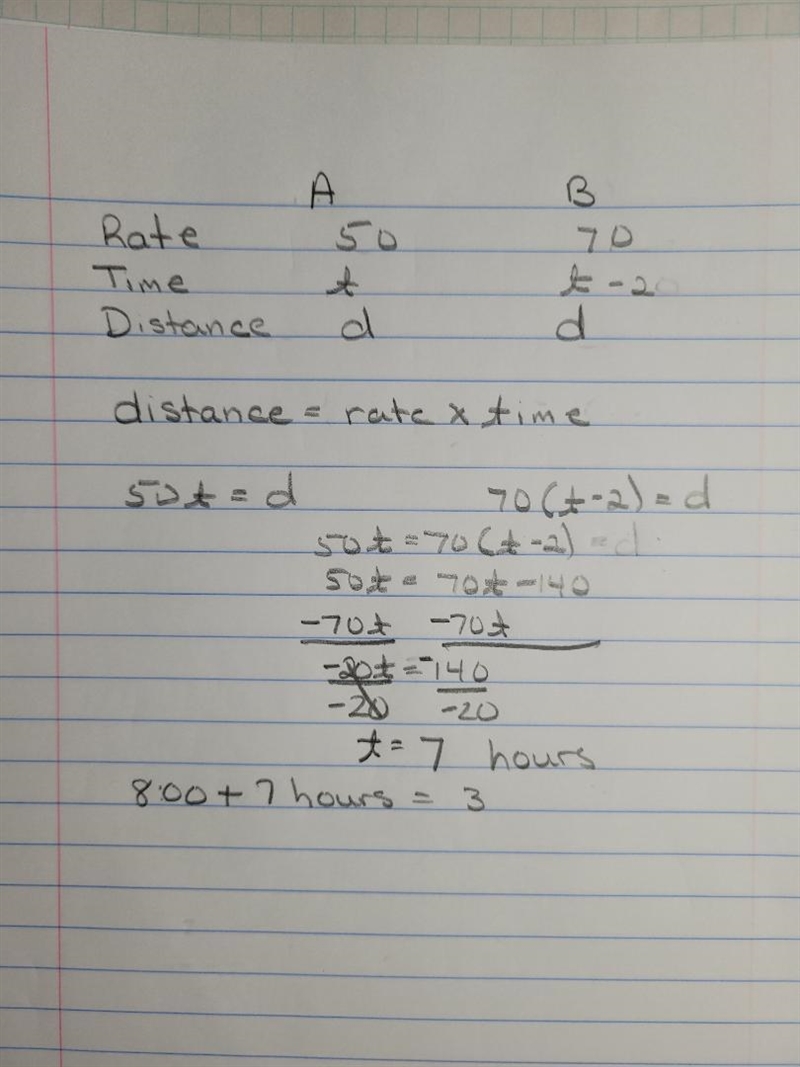 A B
Rate 50 70
Time t t - 2
Distance d d
distance = rate x time
50t = d 70(t-2) = d
50t = 70(t-2) = d
50t = 70t - 140
-70t -70t
-20t = -140
-20 -20
t = 7 hours
8:00 + 7 hours = 3